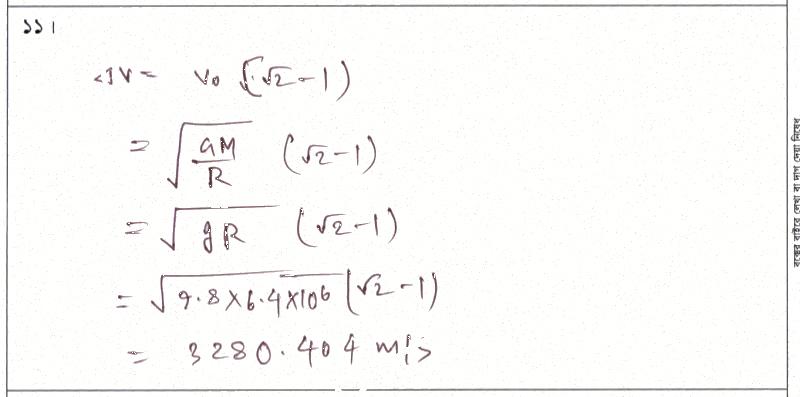 ১১।
ΔV = V₀ (√2 - 1)
= √(GM/R) (√2 - 1)
= √(gR) (√2 - 1)
= √(9.8 × 6.4 × 10⁶) (√2 - 1)
= 3280.404 m/s
বক্সের বাইরে লেখা বা দাগ দেয়া নিষেধ